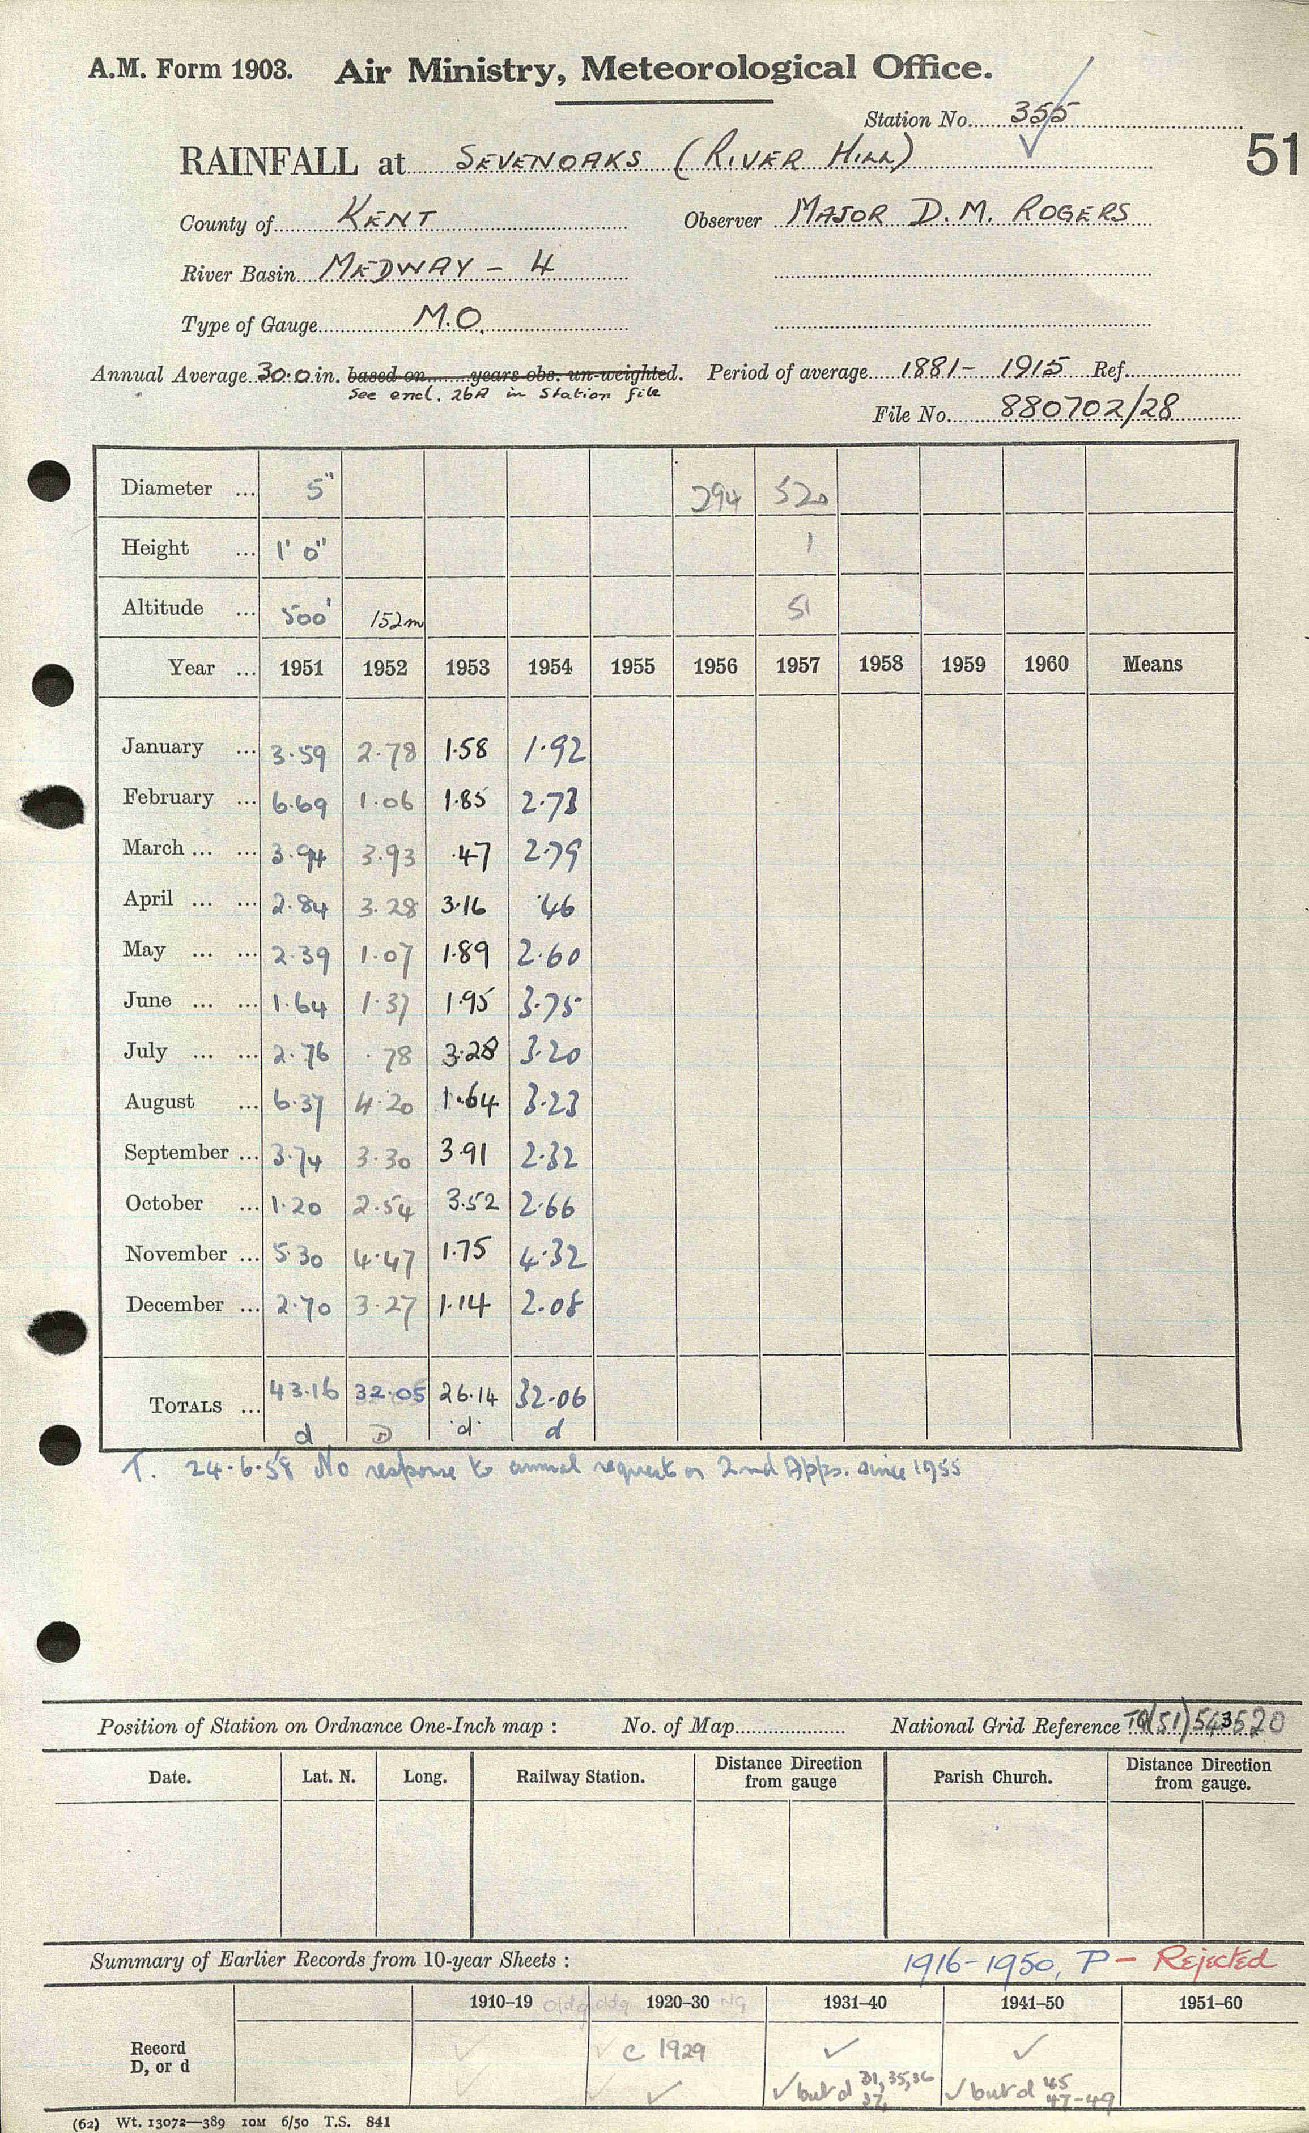 A.M. Form 1903. Air Ministry, Meteorological Office.
Station No. 355
51
RAINFALL at SEVENOAKS (RIVER HILL)
County of KENT Observer MAJOR D.M. ROGERS
River Basin MEDWAY - 4
Type of Gauge M.O.
Annual Average 30.0 in. based on years obs. un-weighted. Period of average 1881 - 1915 Ref.
See encl. 26A in Station file
File No. 880702/28
Diameter ... 5" 294 520
Height ... 1' 0" 1
Altitude ... 500' 152m 51
Year ... 1951 1952 1953 1954 1955 1956 1957 1958 1959 1960 Means
January ... 3.59 2.78 1.58 1.92
February ... 6.69 1.06 1.85 2.73
March ... ... 3.94 3.93 .47 2.79
April ... ... 2.84 3.28 3.16 .46
May ... ... 2.39 1.07 1.89 2.60
June ... ... 1.64 1.37 1.95 3.75
July ... ... 2.76 .78 3.28 3.20
August ... 6.37 4.20 1.64 3.23
September ... 3.74 3.30 3.91 2.32
October ... 1.20 2.54 3.52 2.66
November ... 5.30 4.47 1.75 4.32
December ... 2.70 3.27 1.14 2.08
TOTALS ... 43.16 32.05 26.14 32.06
d D d d
T. 24.6.58 No response to annual request or 2nd Apps. since 1955
Position of Station on Ordnance One-Inch map : No. of Map National Grid Reference TQ(51)543520
Date. Lat. N. Long. Railway Station. Distance from gauge Direction Parish Church. Distance from gauge. Direction
Summary of Earlier Records from 10-year Sheets : 1916-1950, P - Rejected
1910–19 1920–30 NG 1931–40 1941–50 1951–60
Record D, or d c 1929
but d 31, 35, 36 37, but d 45 47-49
(62) Wt. 13072—389 10M 6/50 T.S. 841